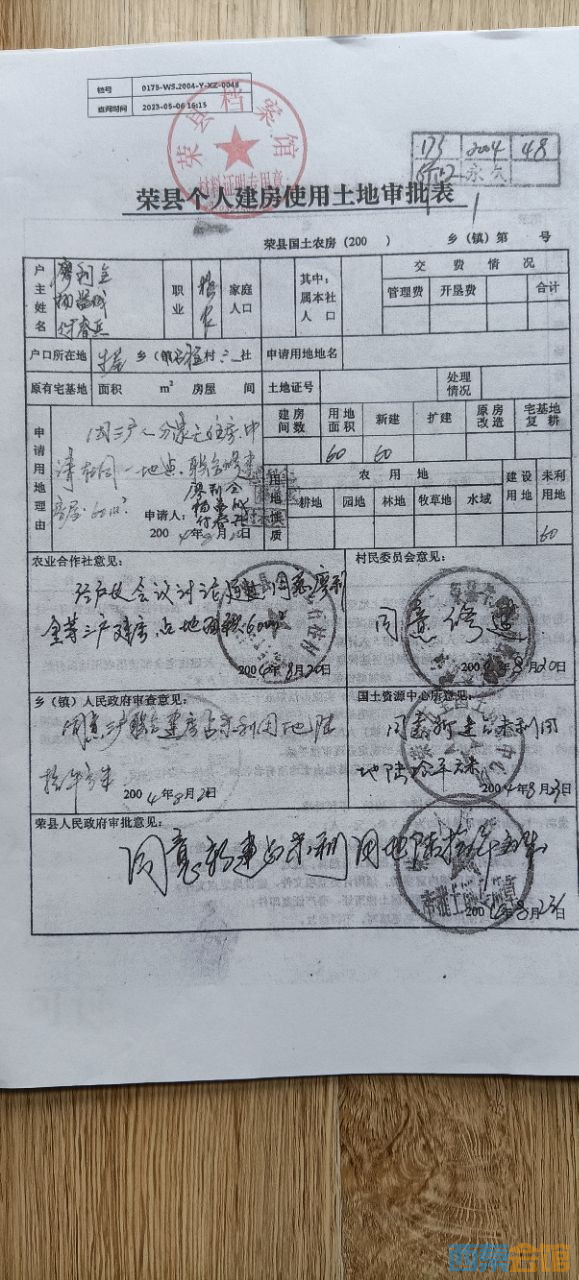 档号 0175-WS.2004-Y-XZ-0048
查阅时间 2023-05-06 16:15
荣县档案馆
材料证明专用章
173 2004 48
永久
荣县个人建房使用土地审批表
荣县国土农房(200 ) 乡(镇)第 号
户主姓名 廖利全
职业 务农 家庭人口 其中:属本社人口 交费情况
管理费 开垦费 合计
户口所在地 乡(镇) 村 社 申请用地地名
原有宅基地 面积 m² 房屋 间 土地证号 处理情况
申请用地理由
因三户人分家无住房,申
请在同一地点,联合修建
房屋60m²
廖利全
申请人:
2004年8月20日
建房间数 用地面积 新建 扩建 原房改造 宅基地复耕
60 60
用地性质 农用地 建设用地 未利用地
耕地 园地 林地 牧草地 水域
60
农业合作社意见:
经户长会议讨论通过,同意廖利
全等三户建房占地面积60m²
2004年8月20日
村民委员会意见:
同意修建
2004年8月20日
乡(镇)人民政府审查意见:
同意三户联合建房占未利用地陆
拾平方米
2004年8月2 日
国土资源中心房意见:
同意新建占未利用
地陆拾平方米
2004年8月23日
荣县人民政府审批意见:
同意新建占未利用地陆拾平方米
2004年8月23日